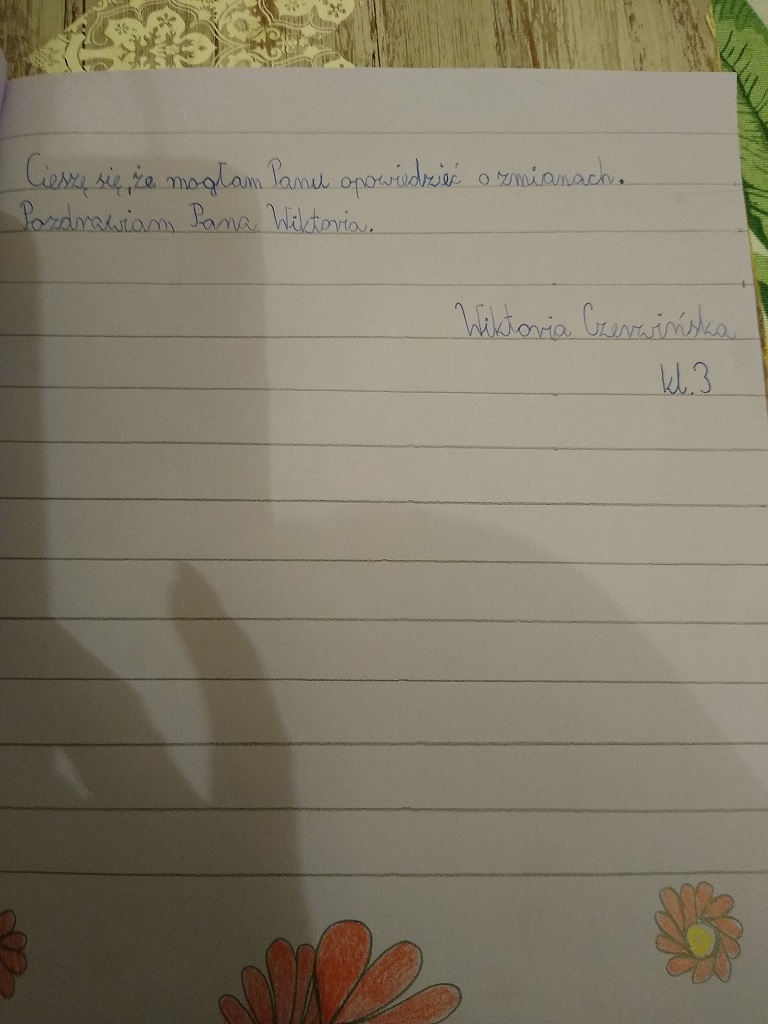 Cieszę się, że mogłam Panu opowiedzieć o zmianach.
Pozdrawiam Pana Wiktoria.
Wiktoria Czerwińska
kl. 3